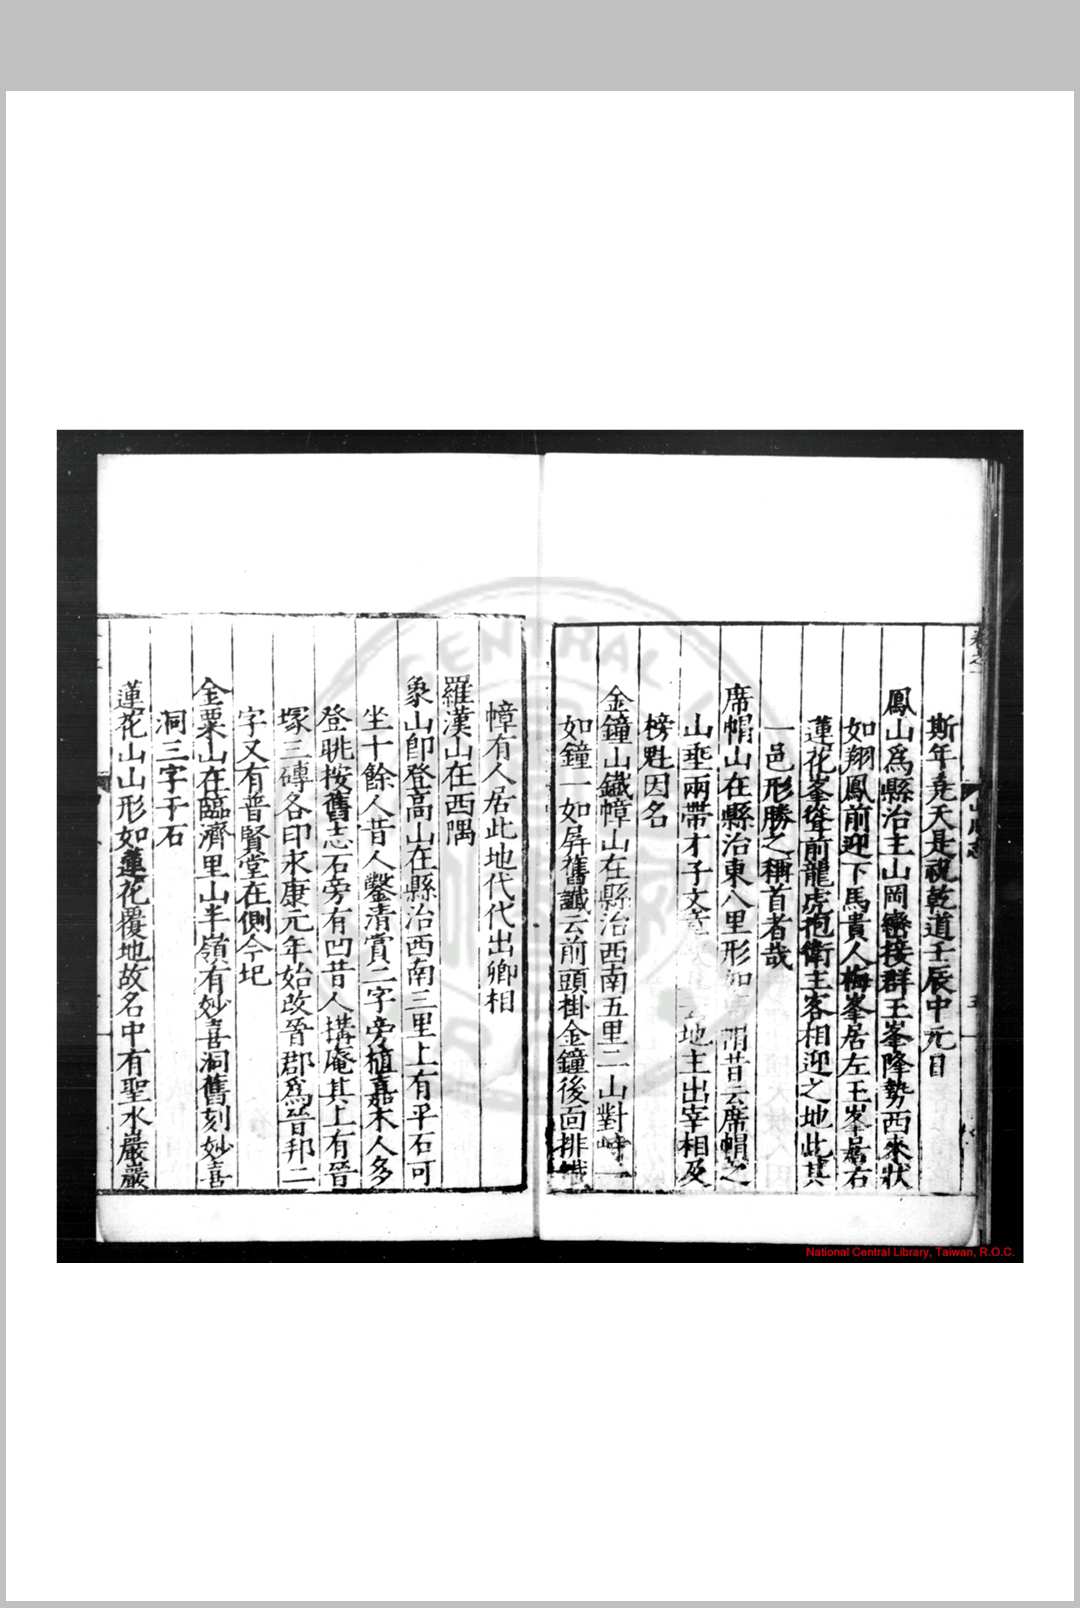 斯年堯天是祝乾道壬辰中元日
鳳山爲縣治主山岡巒接群玉峯隆勢西來狀
如翔鳳前迎下馬貴人梅峯居左王峯居右
蓮花峯聳前龍虎抱衛主客相迎之地此其
一邑形勝之稱首者哉
席帽山在縣治東八里形如帽昔云席帽之
山埀兩帶才子文章地主出宰相及
榜魁因名
金鐘山鐵幛山在縣治西南五里二山對峙一
如鐘一如屏舊讖云前頭掛金鐘後面排鐵
幛有人居此地代代出卿相
羅漢山在西隅
象山卽登高山在縣治西南三里上有平石可
坐十餘人昔人鑿清賞二字旁植嘉木人多
登眺按舊志石旁有凹昔人搆庵其上有晉
塚三磚各印永康元年始改晉郡爲晉邦二
字又有普賢堂在側今圮
金粟山在臨濟里山半嶺有妙喜洞舊刻妙喜
洞三字于石
蓮花山山形如蓮花覆地故名中有聖水巖巖
CENTRAL
National Central Library, Taiwan, R.O.C.